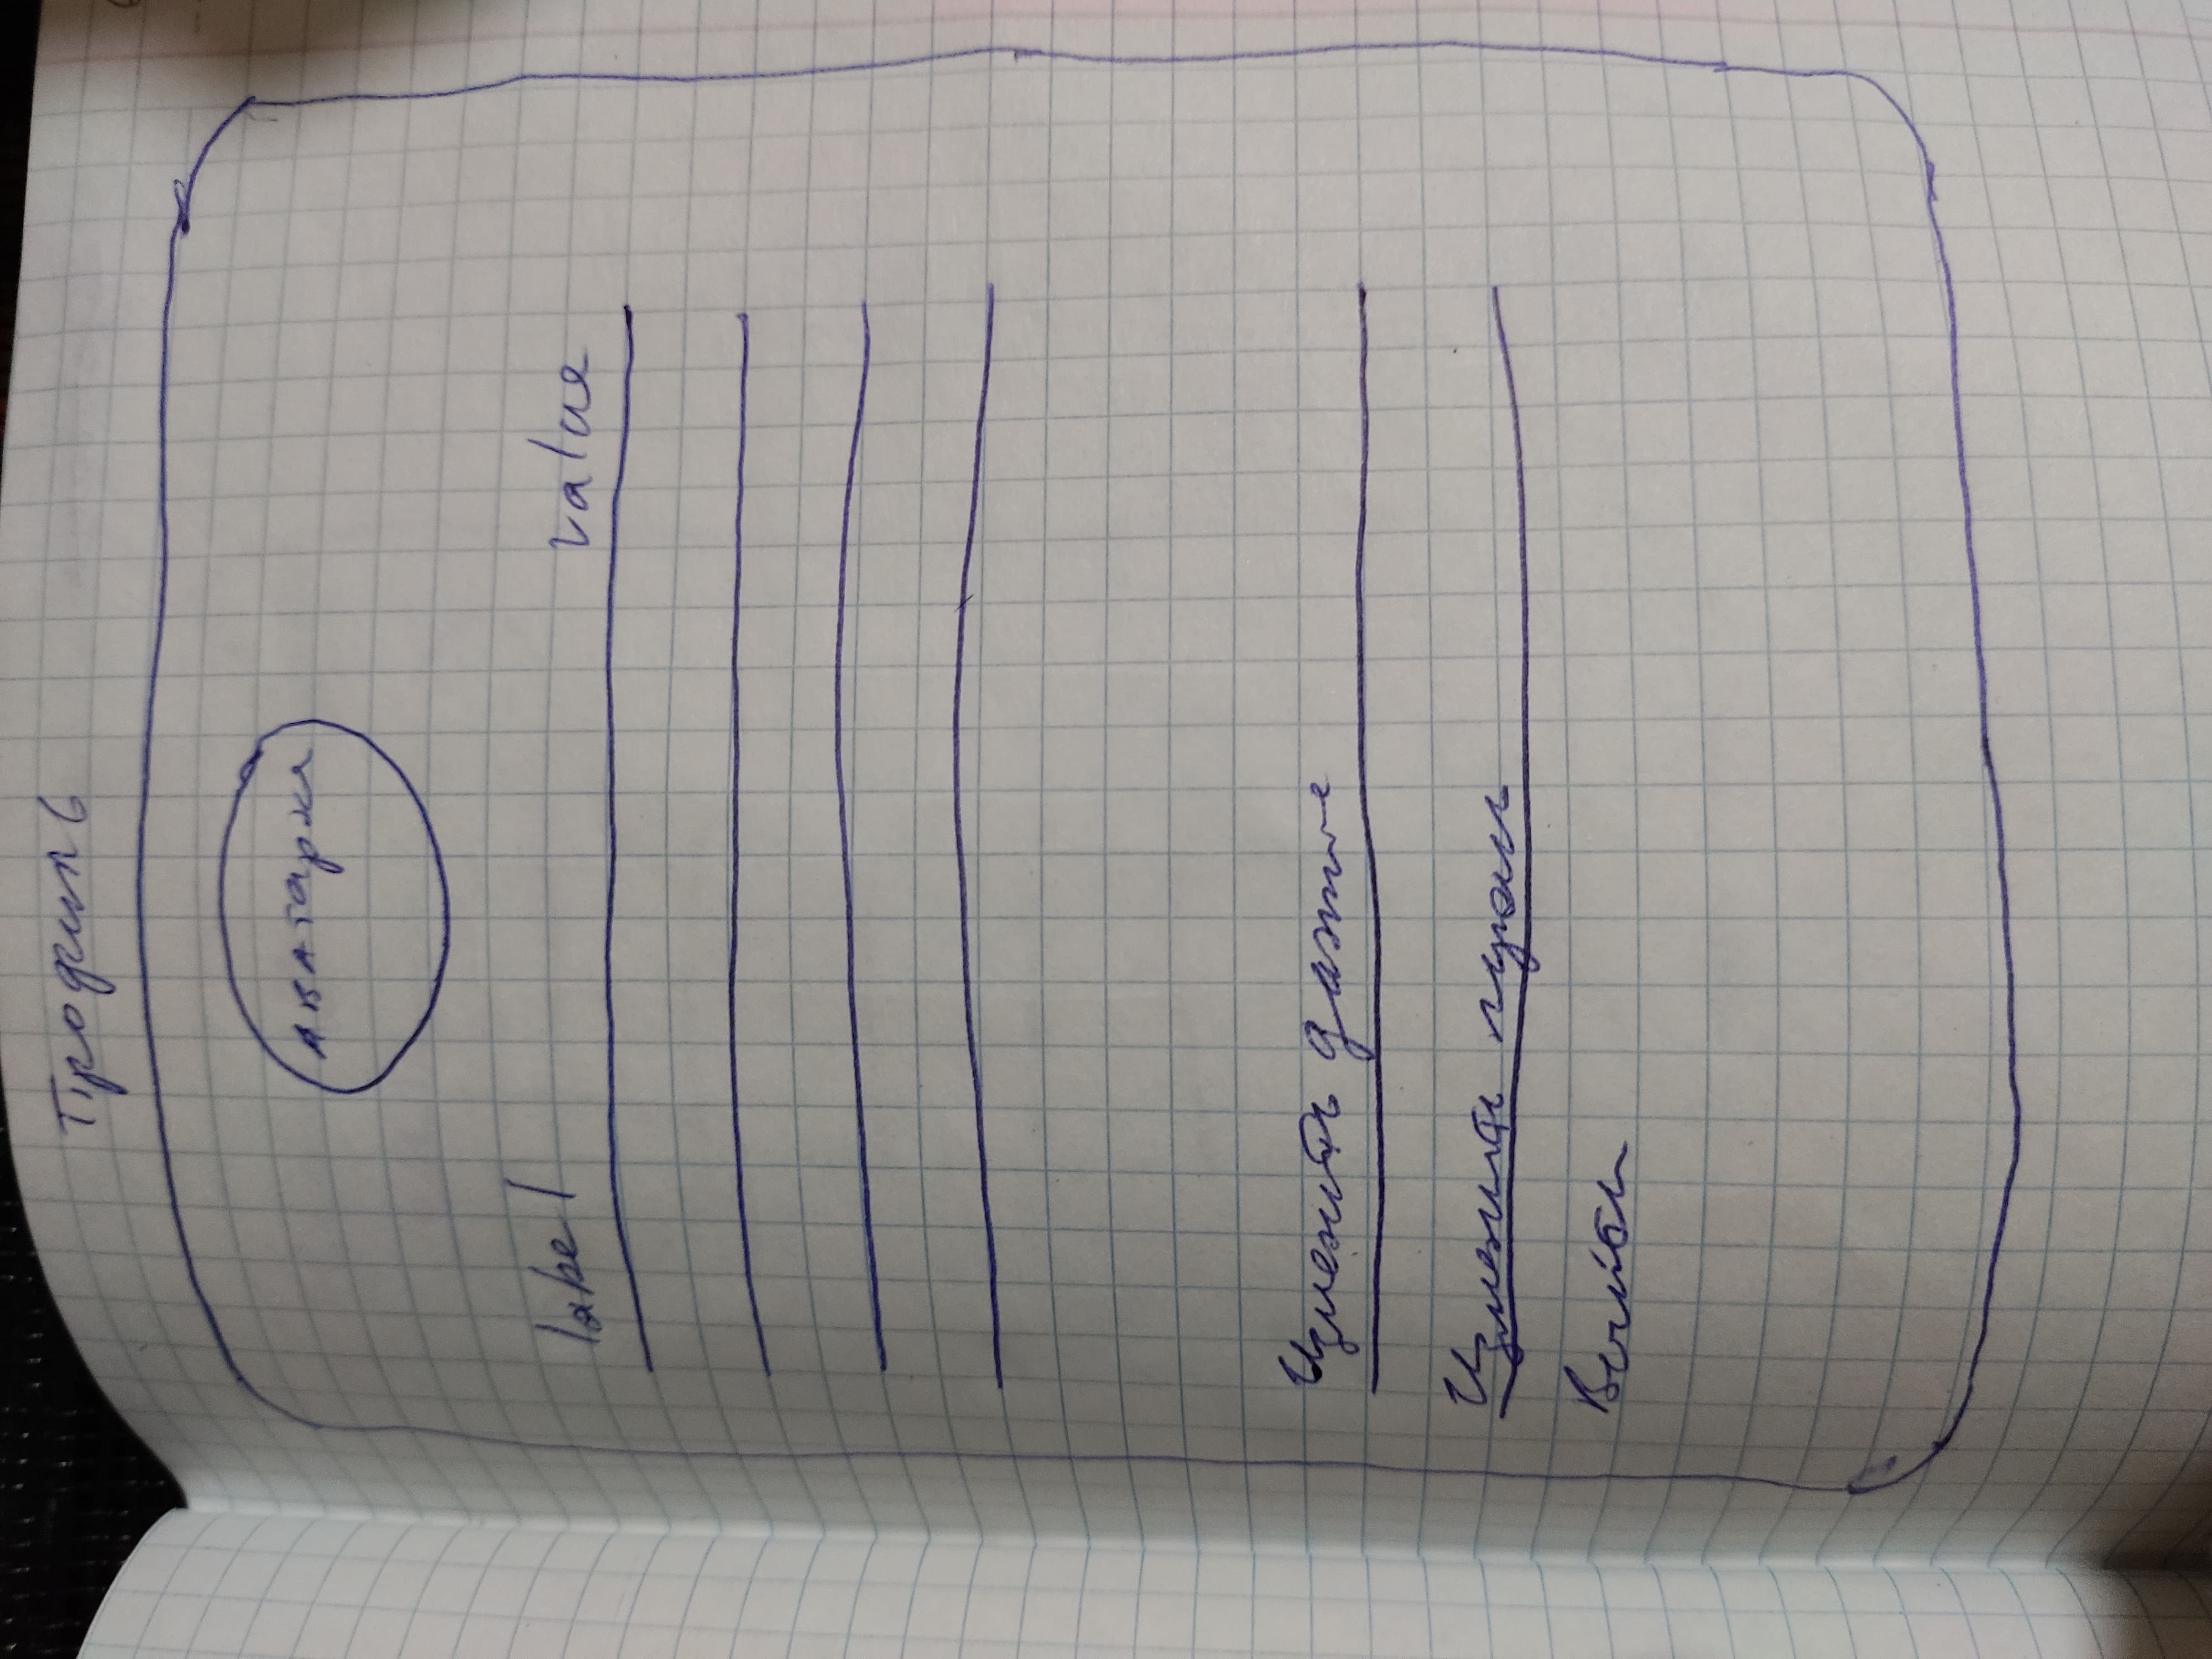 Профиль
Аватарка
label value
Изменить данные
Изменить пароль
Выйти